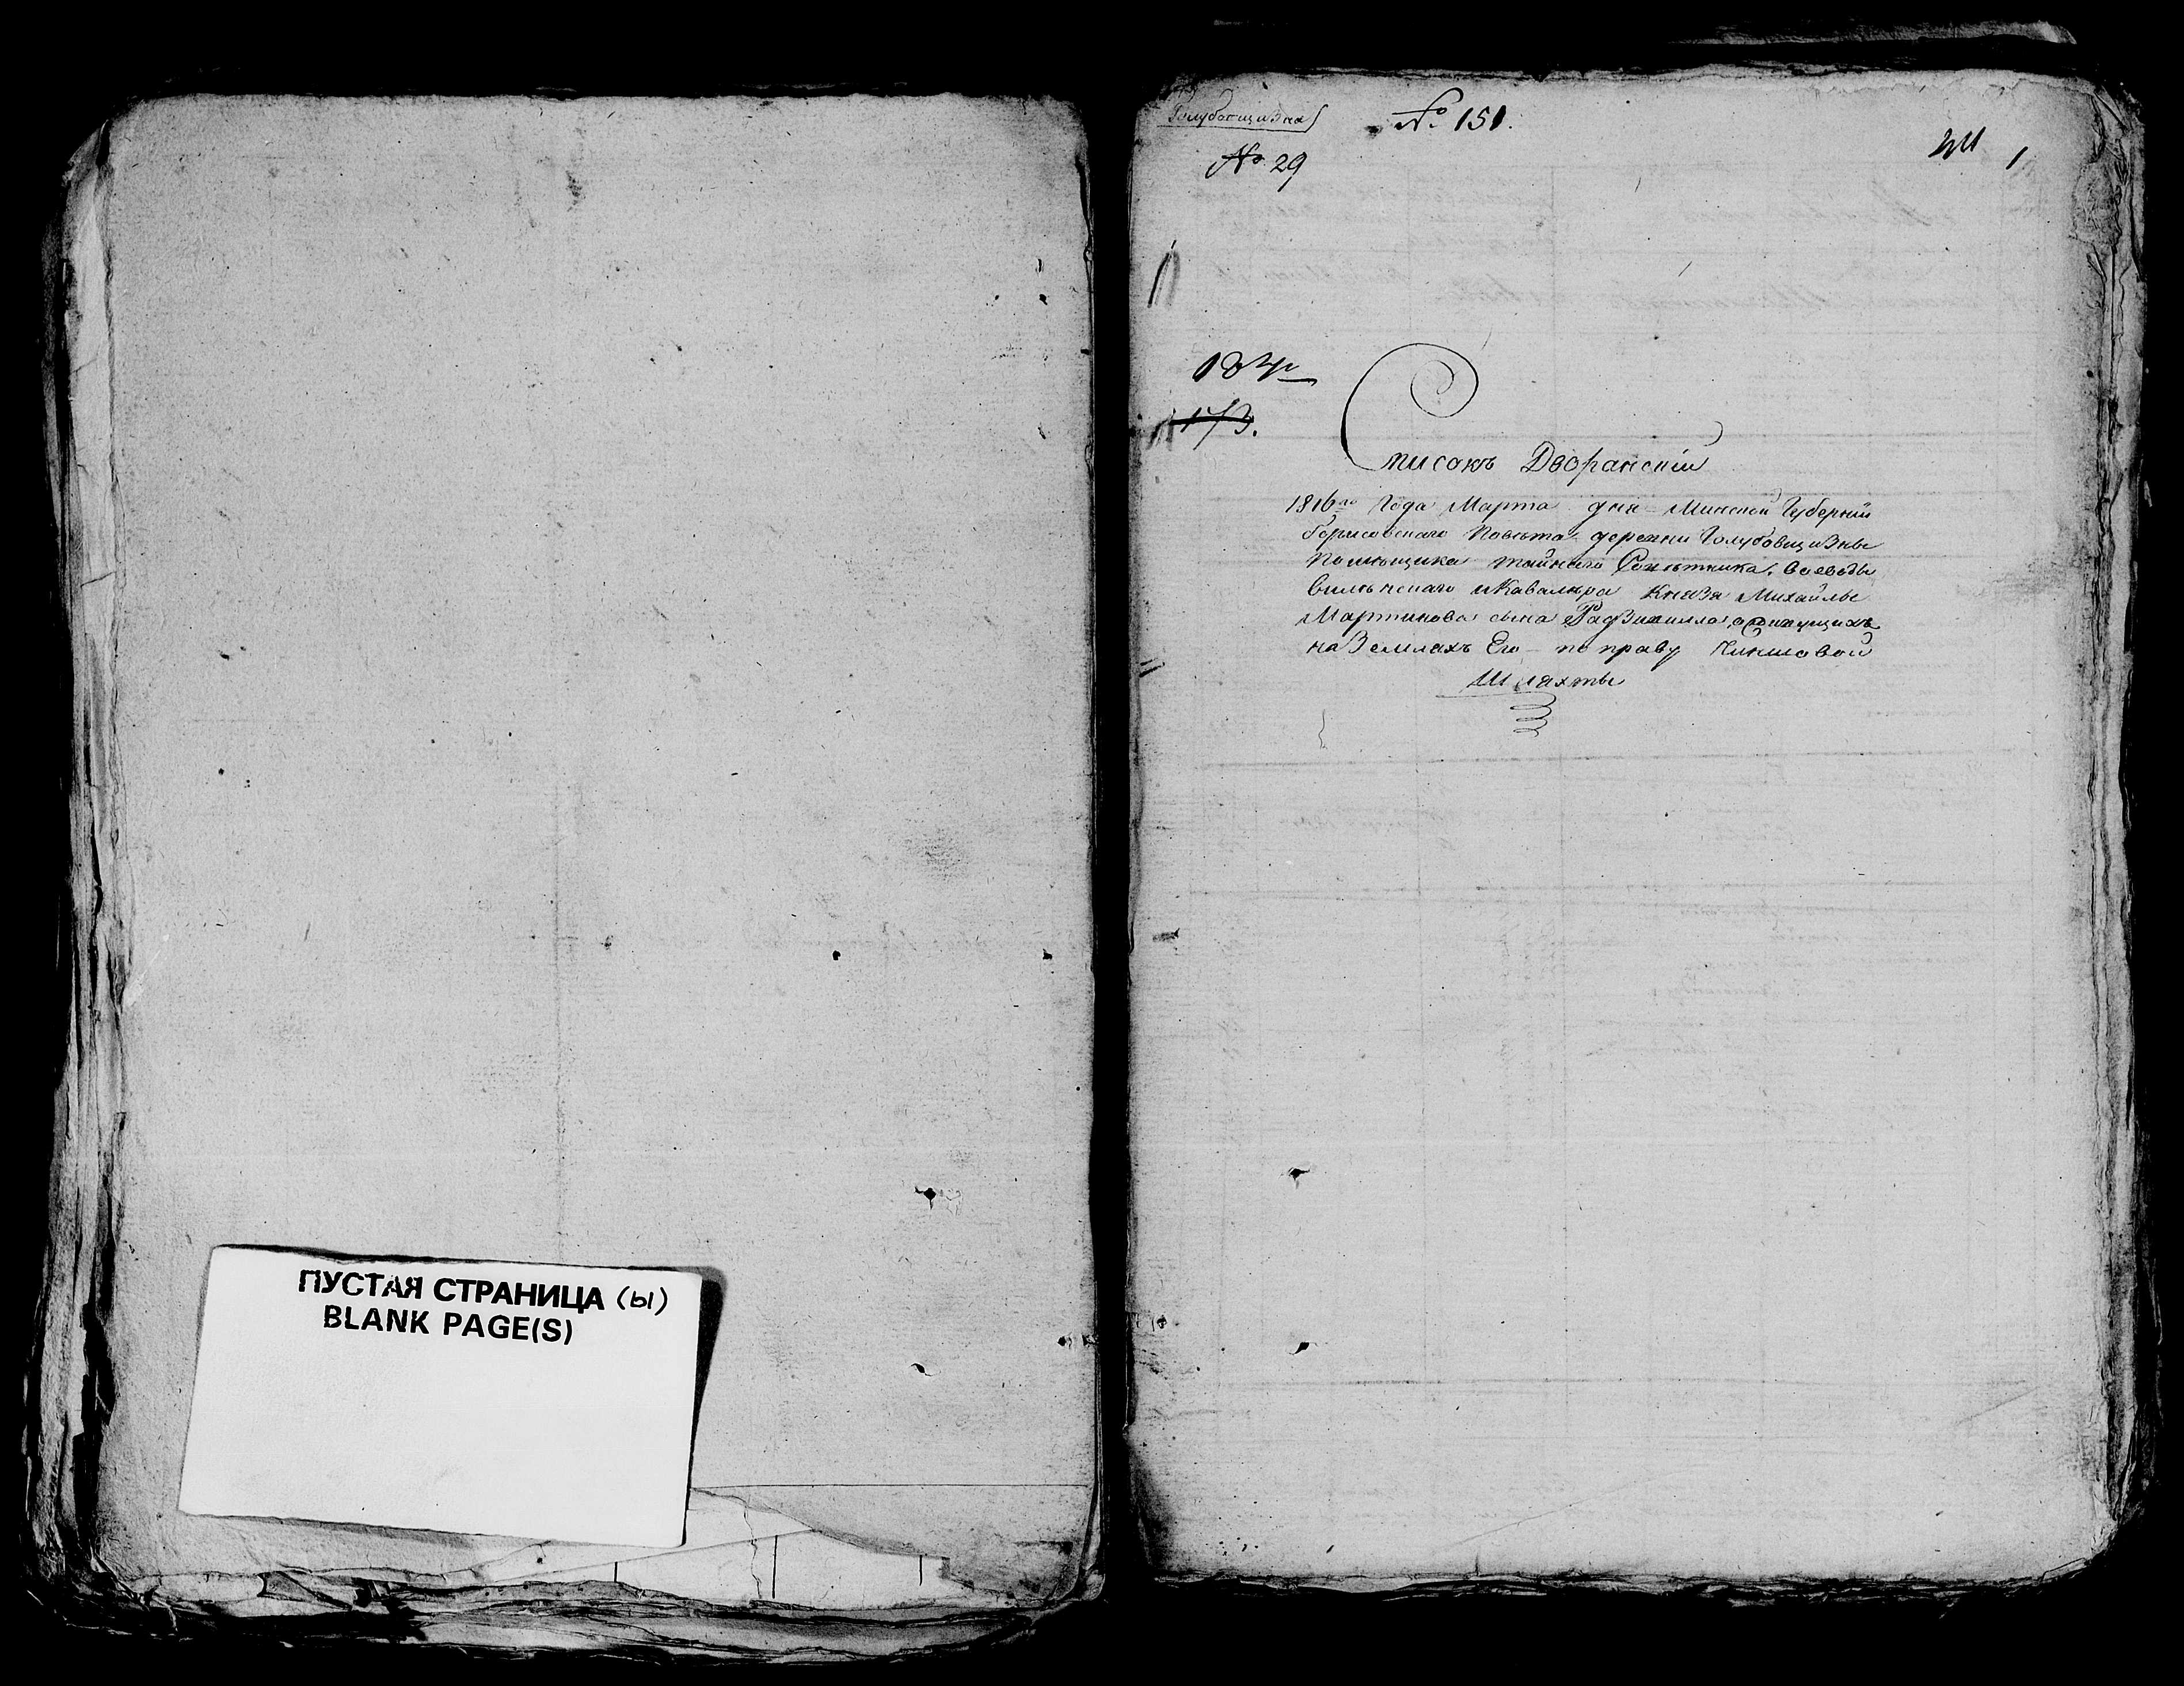 ПУСТАЯ СТРАНИЦА (ы)
BLANK PAGE(S)
Голубовщизна
№ 151.
№ 29
1
173.
Списокъ Дворанскій
1816го Года Марта дня Минской Губерніи
Борисовскаго Повѣта деревни Голубовщизны
Помѣщика тайнаго Совѣтника, Воеводы
Виленскаго и Кавалѣра Князя Михайлы
Мартинова сына Радзивилла,
на Землахъ Его по праву Чиншовой
Шляхты